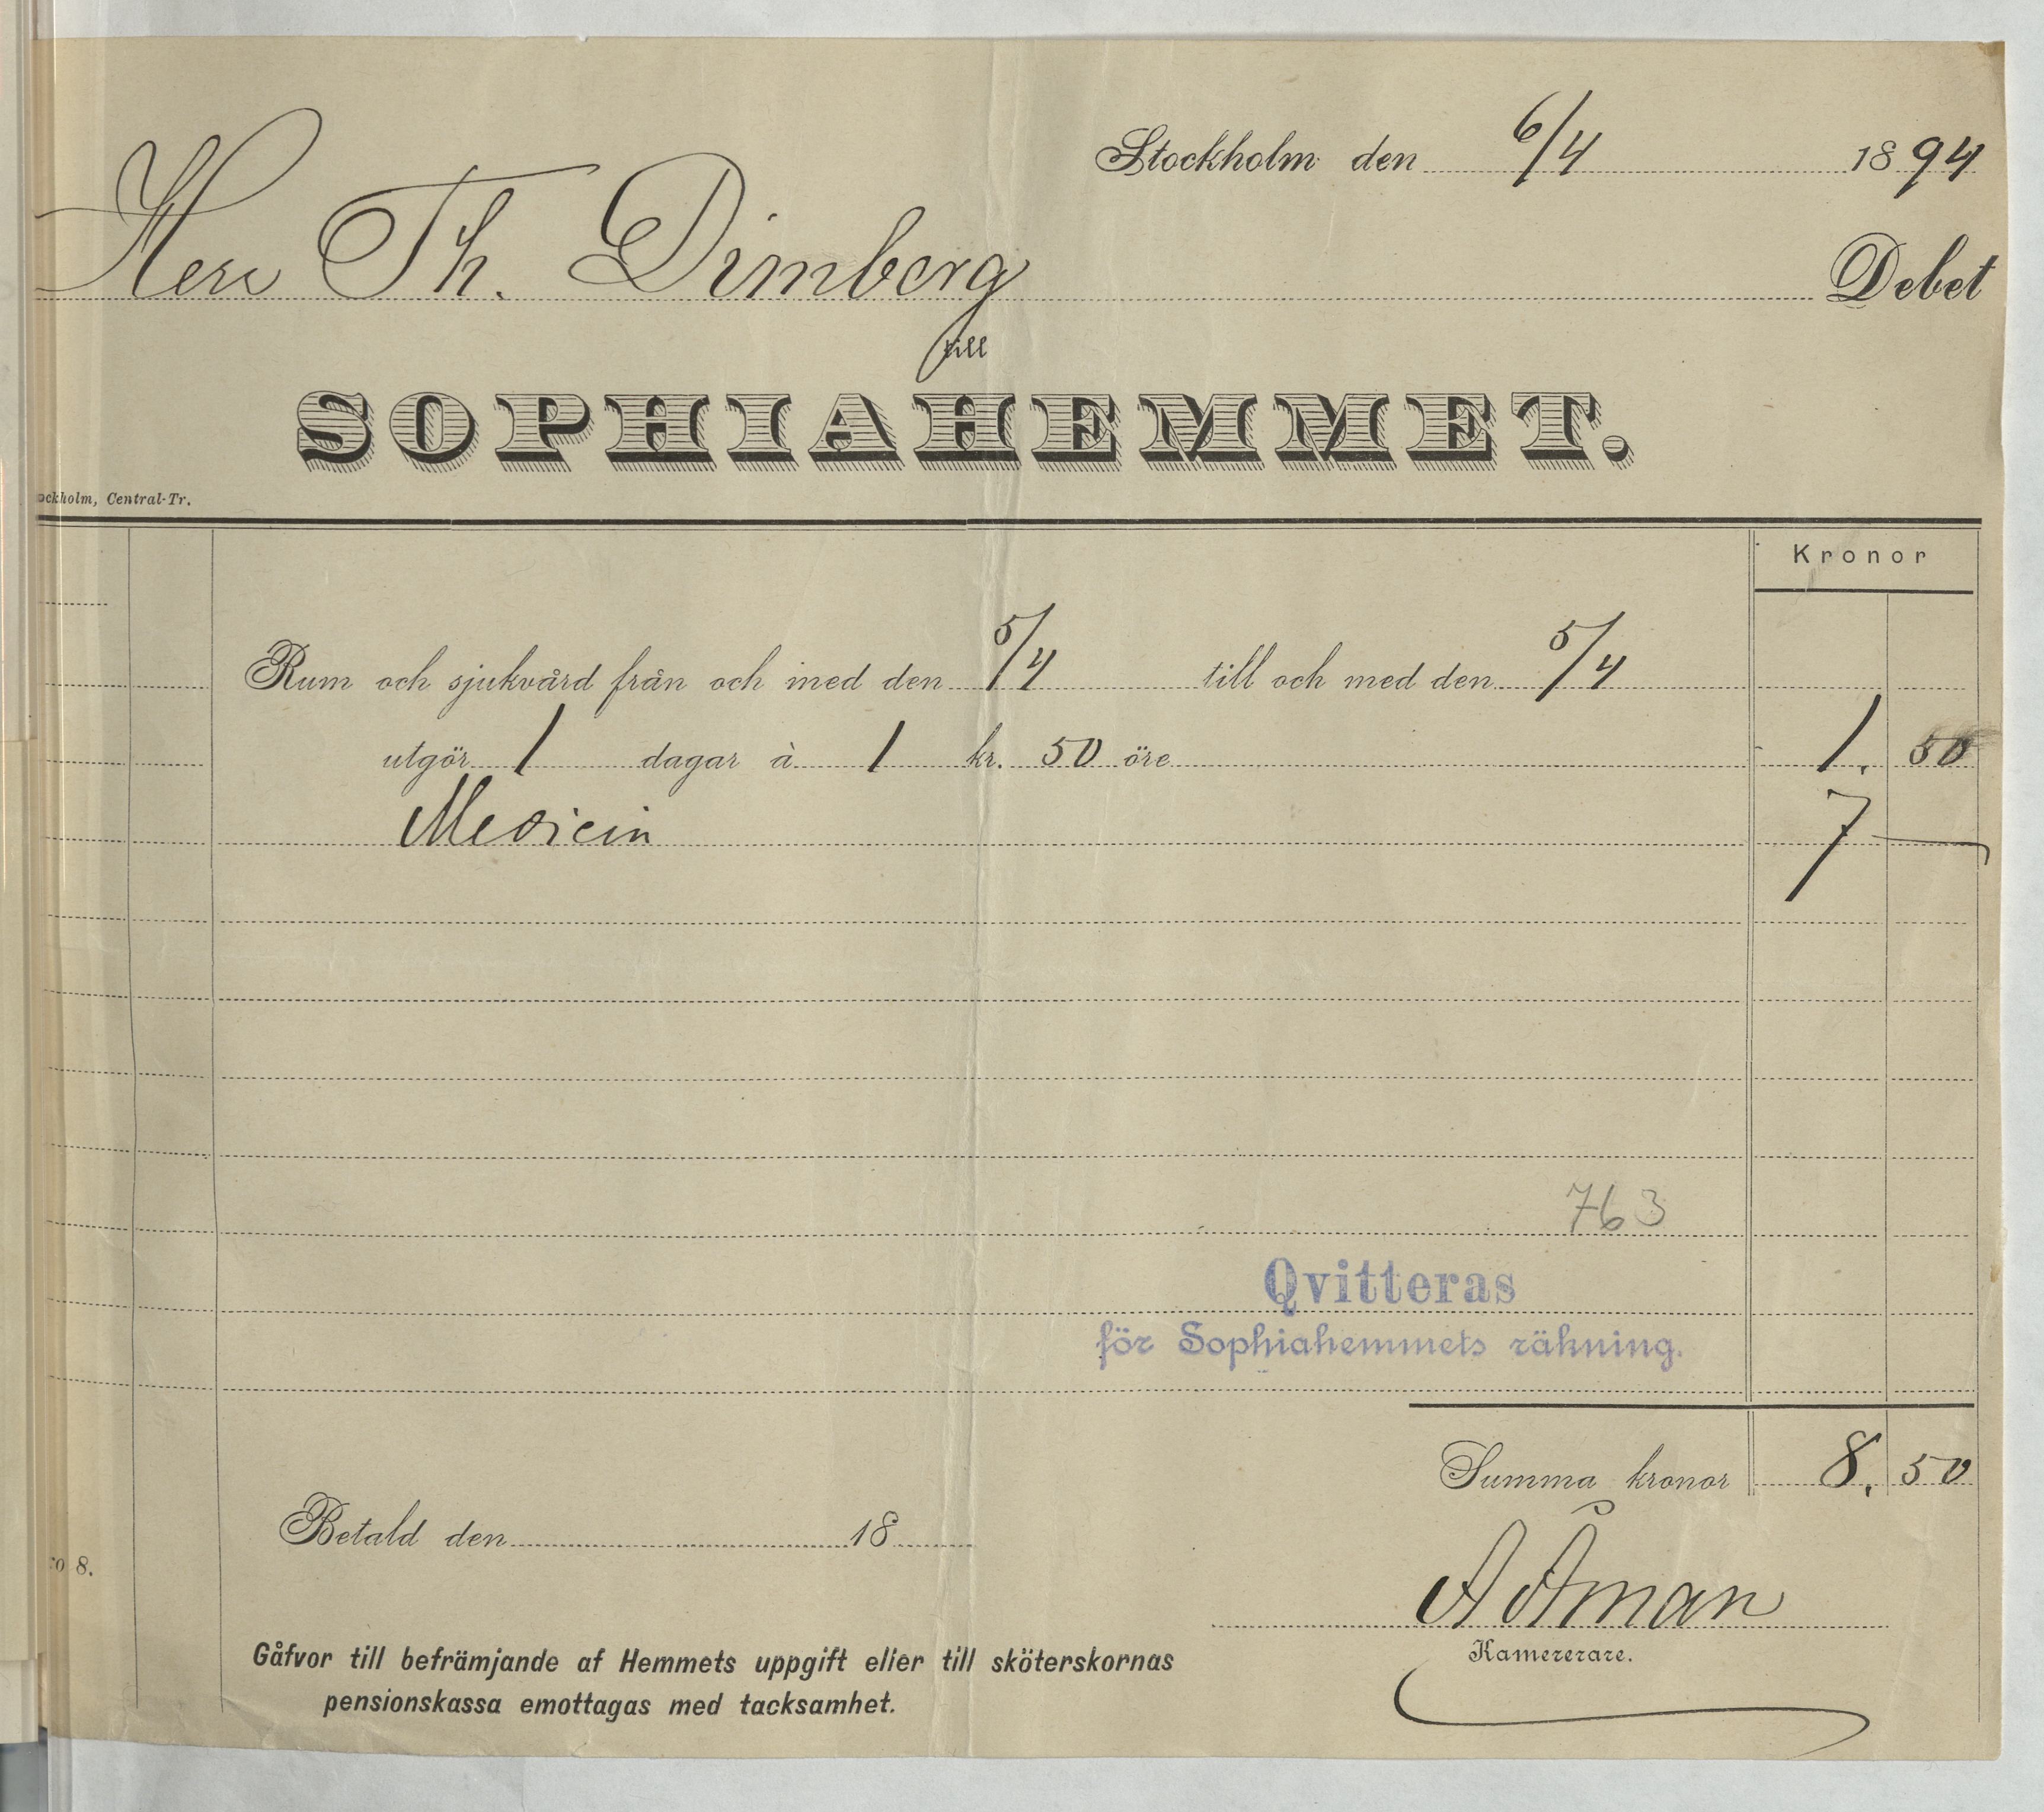 Stockholm den 6/4 1894
Herr Th. Dimberg Debet
till
SOPHIAHEMMET.
ockholm, Central-Tr.
Kronor
Rum och sjukvård från och med den 5/4 till och med den 5/4
utgör 1 dagar à 1 kr. 50 öre 1. 50
Medicin 7 —
763
Qvitteras
för Sophiahemmets räkning.
Summa kronor 8. 50
Betald den 18
ro 8.
A Åman
Kamererare.
Gåfvor till befrämjande af Hemmets uppgift eller till sköterskornas
pensionskassa emottagas med tacksamhet.